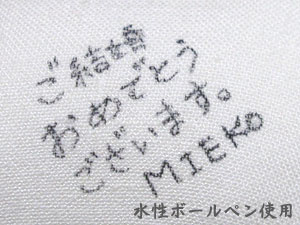 ご結婚
おめでとう
ございます。
MIEKO
水性ボールペン使用